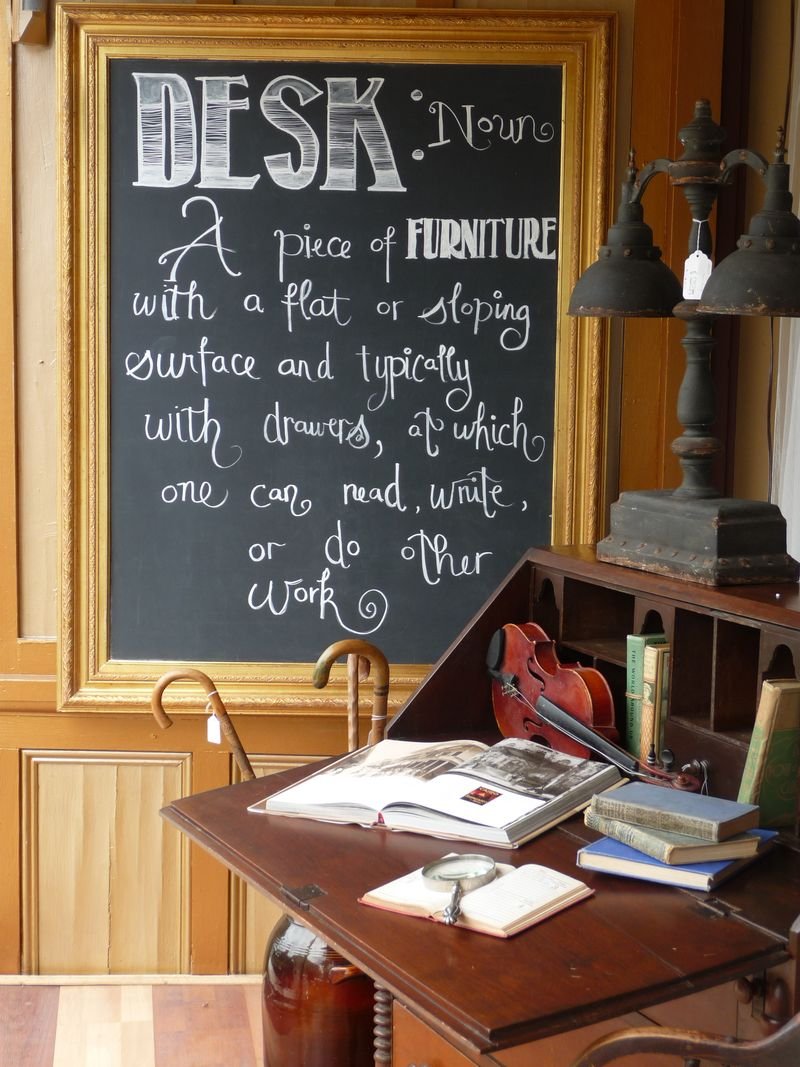 DESK : Noun
A piece of FURNITURE
with a flat or sloping
surface and typically
with drawers, at which
one can read, write,
or do other
work
THE WORLD AROUND US